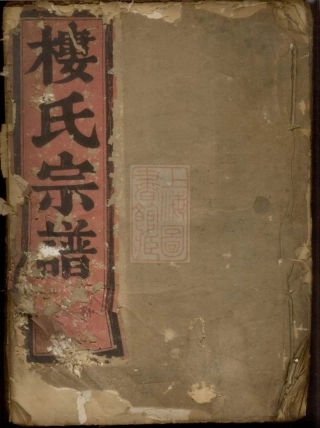 樓氏宗譜
上海圖
書館藏